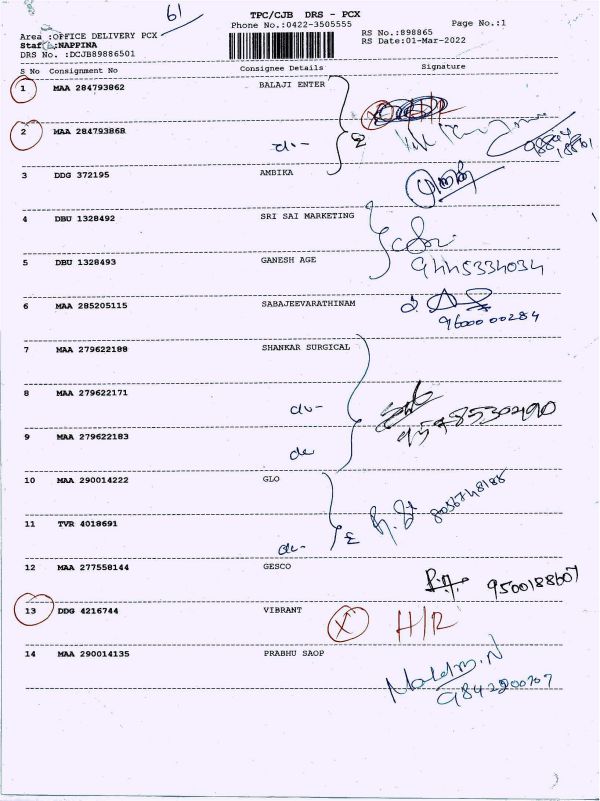 61
TPC/CJB DRS - PCX
Phone No.:0422-3505555
Page No.:1
Area :OFFICE DELIVERY PCX
RS No.:898865
Staff :NAPPINA
RS Date:01-Mar-2022
DRS No. :DCJB89886501
S No Consignment No Consignee Details Signature
1 MAA 284793862 BALAJI ENTER
H/R
2 MAA 284793868
do-
3 DDG 372195 AMBIKA
4 DBU 1328492 SRI SAI MARKETING
5 DBU 1328493 GANESH AGE
9445334034
6 MAA 285205115 SABAJEEVARATHINAM
9600000284
7 MAA 279622188 SHANKAR SURGICAL
8 MAA 279622171
do-
9 MAA 279622183
do
10 MAA 290014222 GLO
8056748188
11 TVR 4018691
do-
12 MAA 277558144 GESCO
9500188607
13 DDG 4216744 VIBRANT X H/R
14 MAA 290014135 PRABHU SAOP